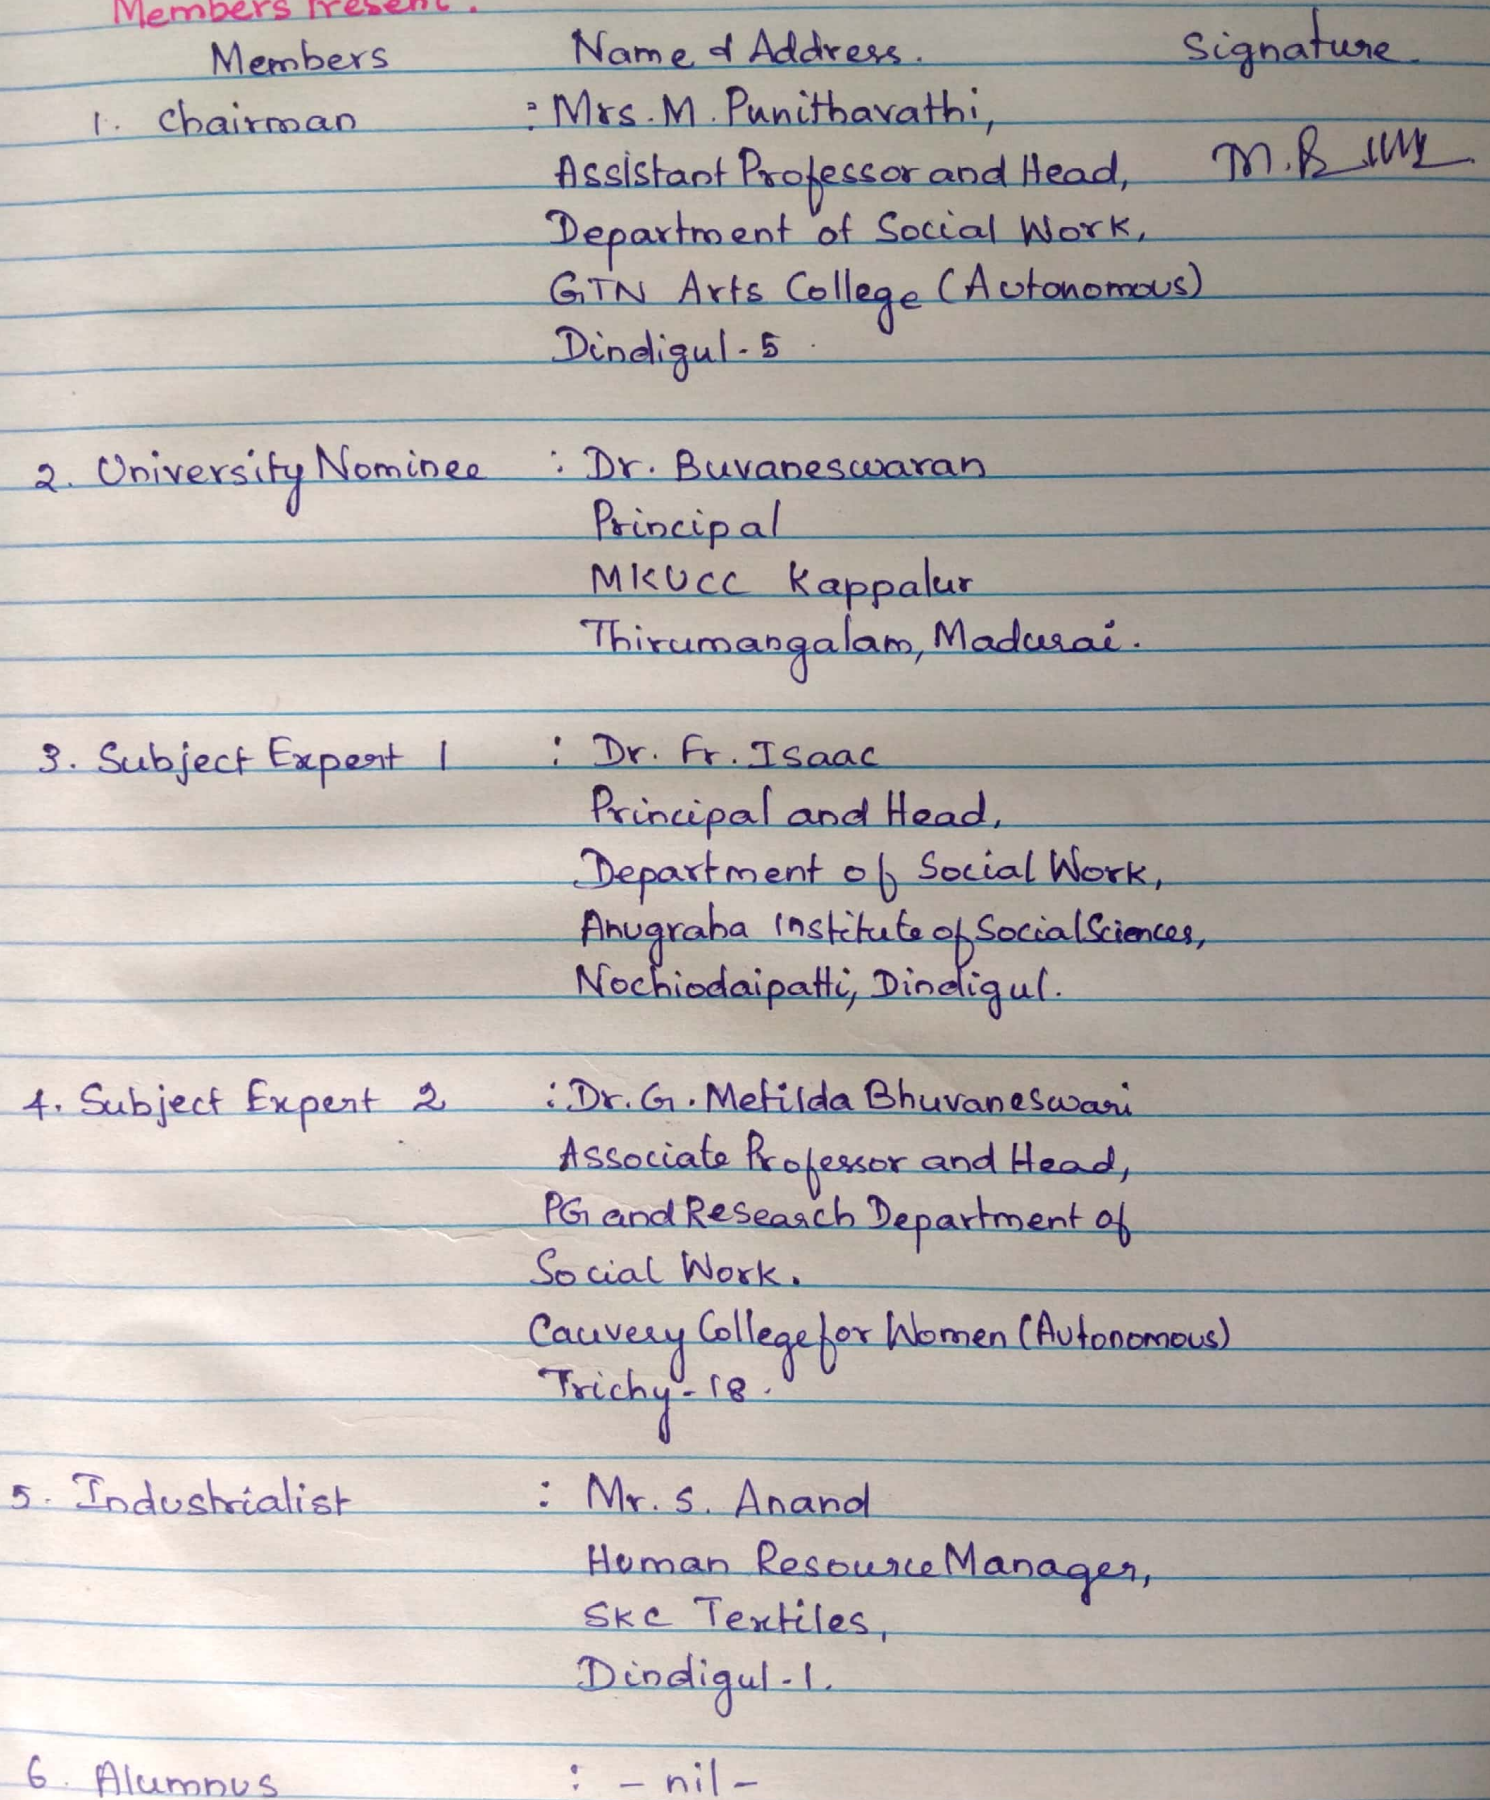 Members Present.
Members Name & Address. Signature.
1. Chairman : Mrs. M. Punithavathi,
Assistant Professor and Head,
Department of Social Work,
GTN Arts College (Autonomous)
Dindigul-5.
2. University Nominee : Dr. Buvaneswaran
Principal
MKUCC Kappalur
Thirumangalam, Madurai.
3. Subject Expert 1 : Dr. Fr. Isaac
Principal and Head,
Department of Social Work,
Anugraha Institute of Social Sciences,
Nochiodaipatti, Dindigul.
4. Subject Expert 2 : Dr. G. Metilda Bhuvaneswari
Associate Professor and Head,
PG and Research Department of
Social Work.
Cauvery College for Women (Autonomous)
Trichy-18.
5. Industrialist : Mr. S. Anand
Human Resource Manager,
SKC Textiles,
Dindigul-1.
6. Alumnus : - nil -